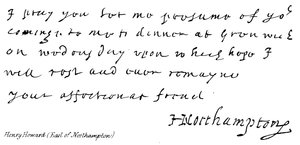 I pray you let me presume of yor
coming to me to dinner at Grenwich
on wednes day upon which hope I
will rest and ever remayne
your affectionat frend
HNorthampton
Henry Howard (Earl of Northampton)